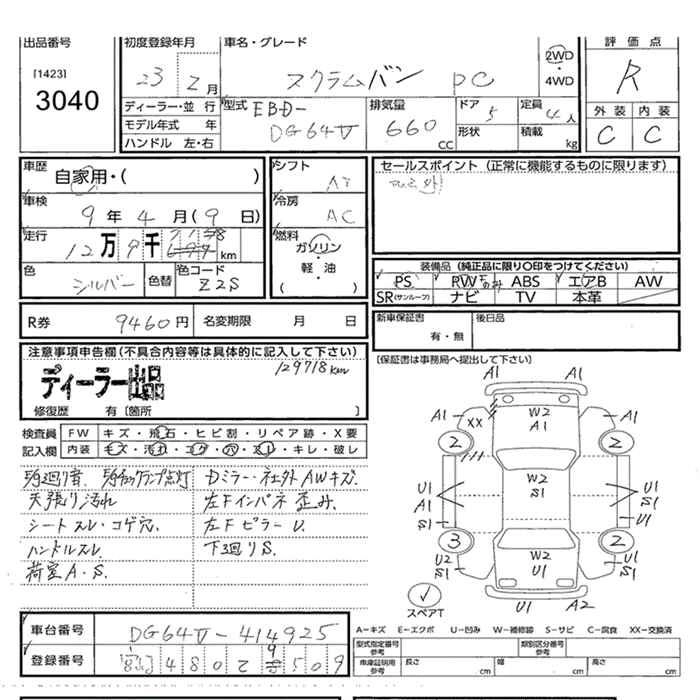 出品番号
[1423]
3040
初度登録年月
23 2 月
車名・グレード
スクラムバン PC
2WD
・
4WD
評価点
R
外装 内装
C C
ディーラー・並 行
モデル年式 年
ハンドル 左・右
型式 EBD-
DG64V
排気量
660 cc
ドア 5
形状
定員 4 人
積載 kg
車歴
自家用・( )
車検
9 年 4 月 ( 9 日)
走行
12 万 9 千 718 km
色 シルバー 色替 色コード Z2S
シフト
AT
冷房
AC
燃料
ガソリン
・
軽・油
( )
セールスポイント (正常に機能するものに限ります)
装備品 (純正品に限り○印をつけてください)
PS RW ABS エアB AW
SR(サンルーフ) ナビ TV 本革
R券 9460円 名変期限 月 日
新車保証書 後日品
有・無
(保証書は事務局へ提出して下さい)
注意事項申告欄 (不具合内容等は具体的に記入して下さい)
129718km
ディーラー出品
修復歴 有〔箇所 〕
検査員 FW キズ・飛石・ヒビ割・リペア跡・X要
記入欄 内装 キズ・汚れ・コゲ・穴・スレ・キレ・破レ
天張り汚れ
シートスレ・コゲ穴.
ハンドルスレ
荷室A・S.
Dミラー・ネ社外AWキズ.
左Fインパネ歪み.
左FピラーU.
下廻りS.
A1 A1
A1 XX W2 A1 A1
2 2
U1 A1 S1 W2 S1 U1 S1 U1
3 2
U2 S1 W2 U1 S1
U1 A2
スペアT
車台番号 DG64V-414925
登録番号 480 509
A−キズ E−エクボ U−凹み W−補修跡 S−サビ C−腐食 XX−交換済
型式指定番号 参考 類別区分番号 参考
車庫証明用 参考 長さ cm 幅 cm 高さ cm